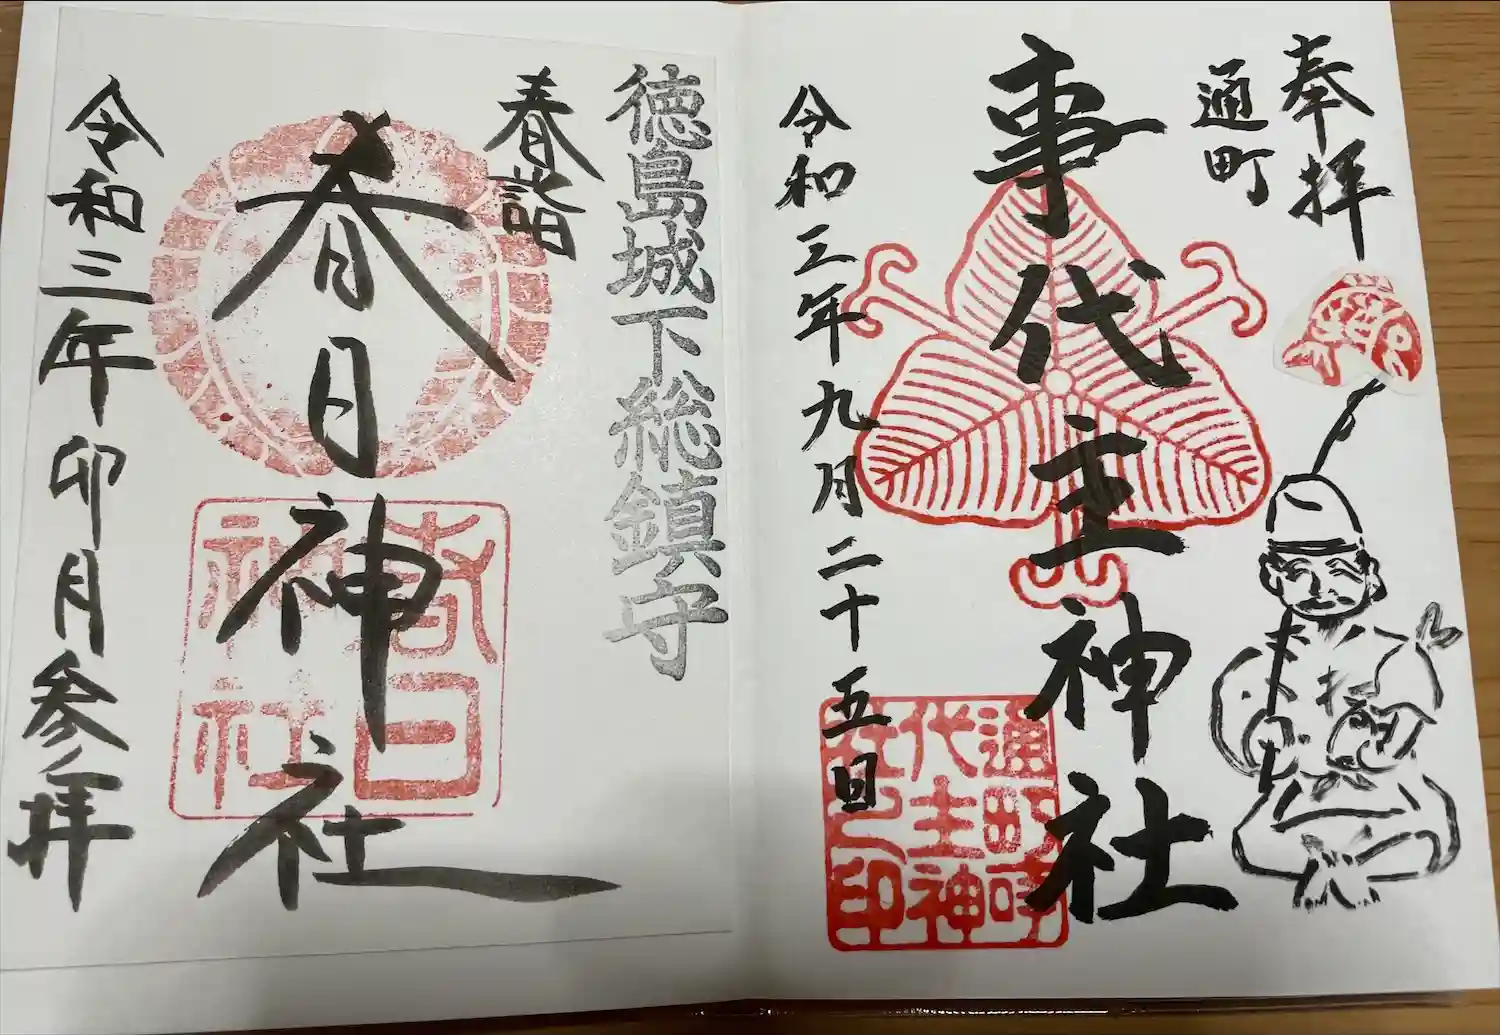 奉拝
通町
事代主神社
令和三年九月二十五日
通町事
代主神
社之印
徳島城下総鎮守
春詣
春日神社
春日
神社
令和三年卯月参拝